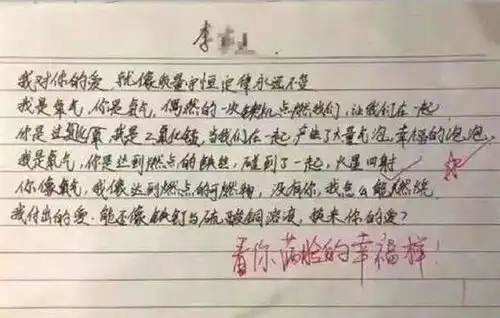 李
我对你的爱，就像质量守恒定律永远不变
我是氧气，你是氢气，偶然的一次契机点燃我们，让我们在一起，
你是过氧化氢，我是二氧化锰，当我们在一起，产生了大量气泡，幸福的泡泡，
我是氧气，你是达到燃点的铁丝，碰到了一起，火星四射
你像氧气，我像达到燃点的可燃物，没有你，我怎么能燃烧，
我付出的爱，能否像铁钉与硫酸铜溶液，换来你的爱？
看你满脸的幸福样！